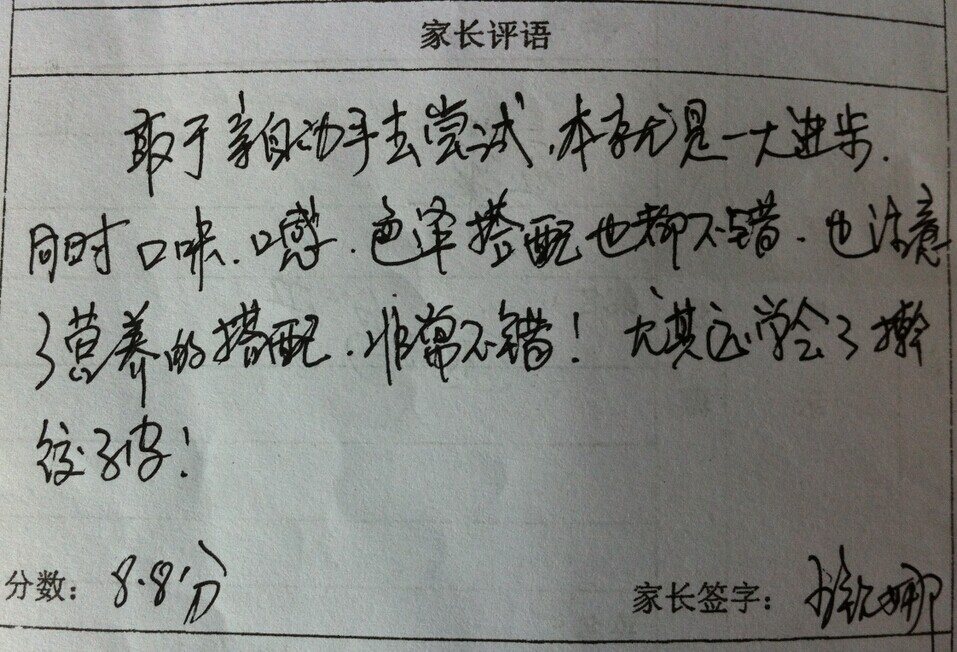 家长评语
敢于亲自动手去尝试,本身就是一大进步.
同时口味、口感、色泽搭配也都不错、也注意
了营养的搭配、非常不错!尤其还学会了擀
饺子皮!
分数: 8.8分 家长签字: